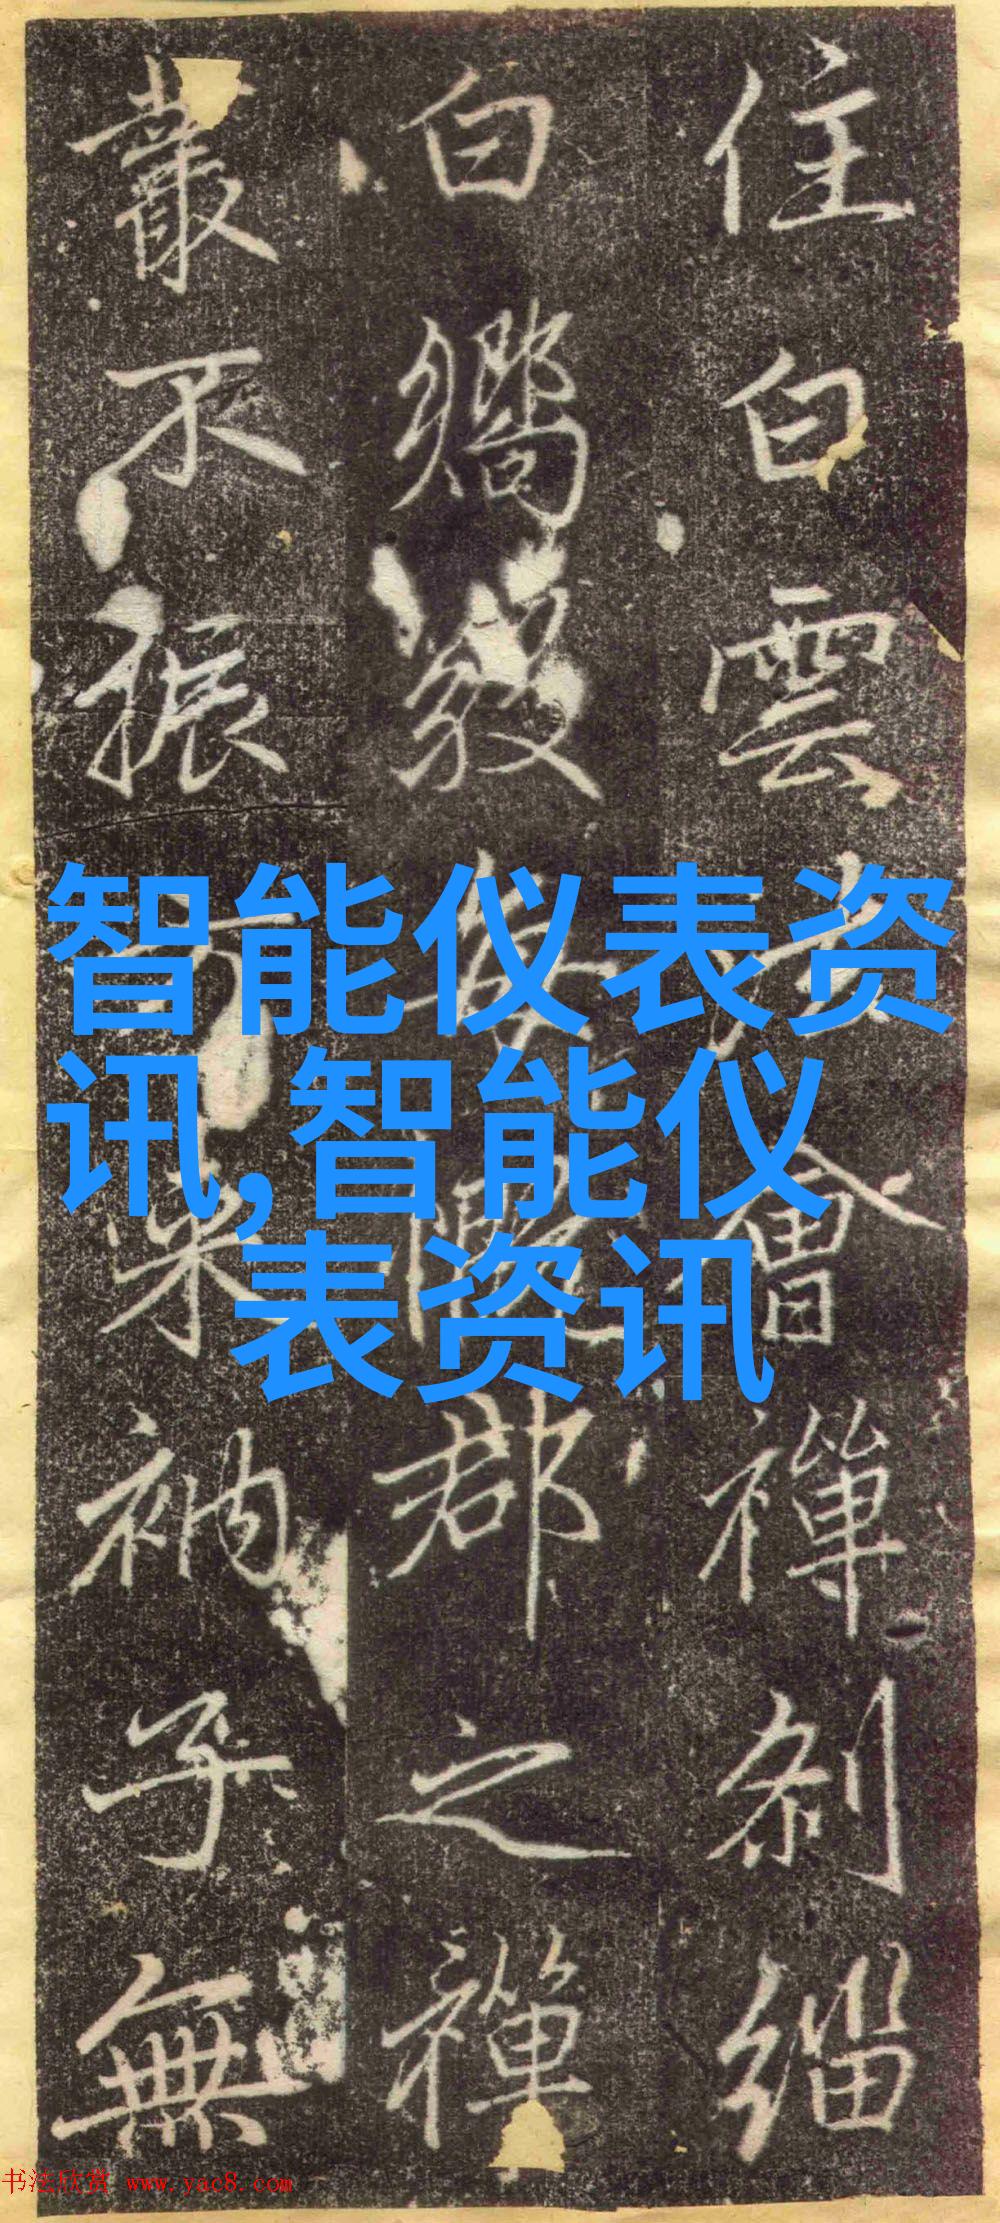 住白雲會禪刹緇
白郡之禪
叢不振來衲子無
智能仪表资
讯,智能仪
表资讯
书法欣赏 www.yac8.com